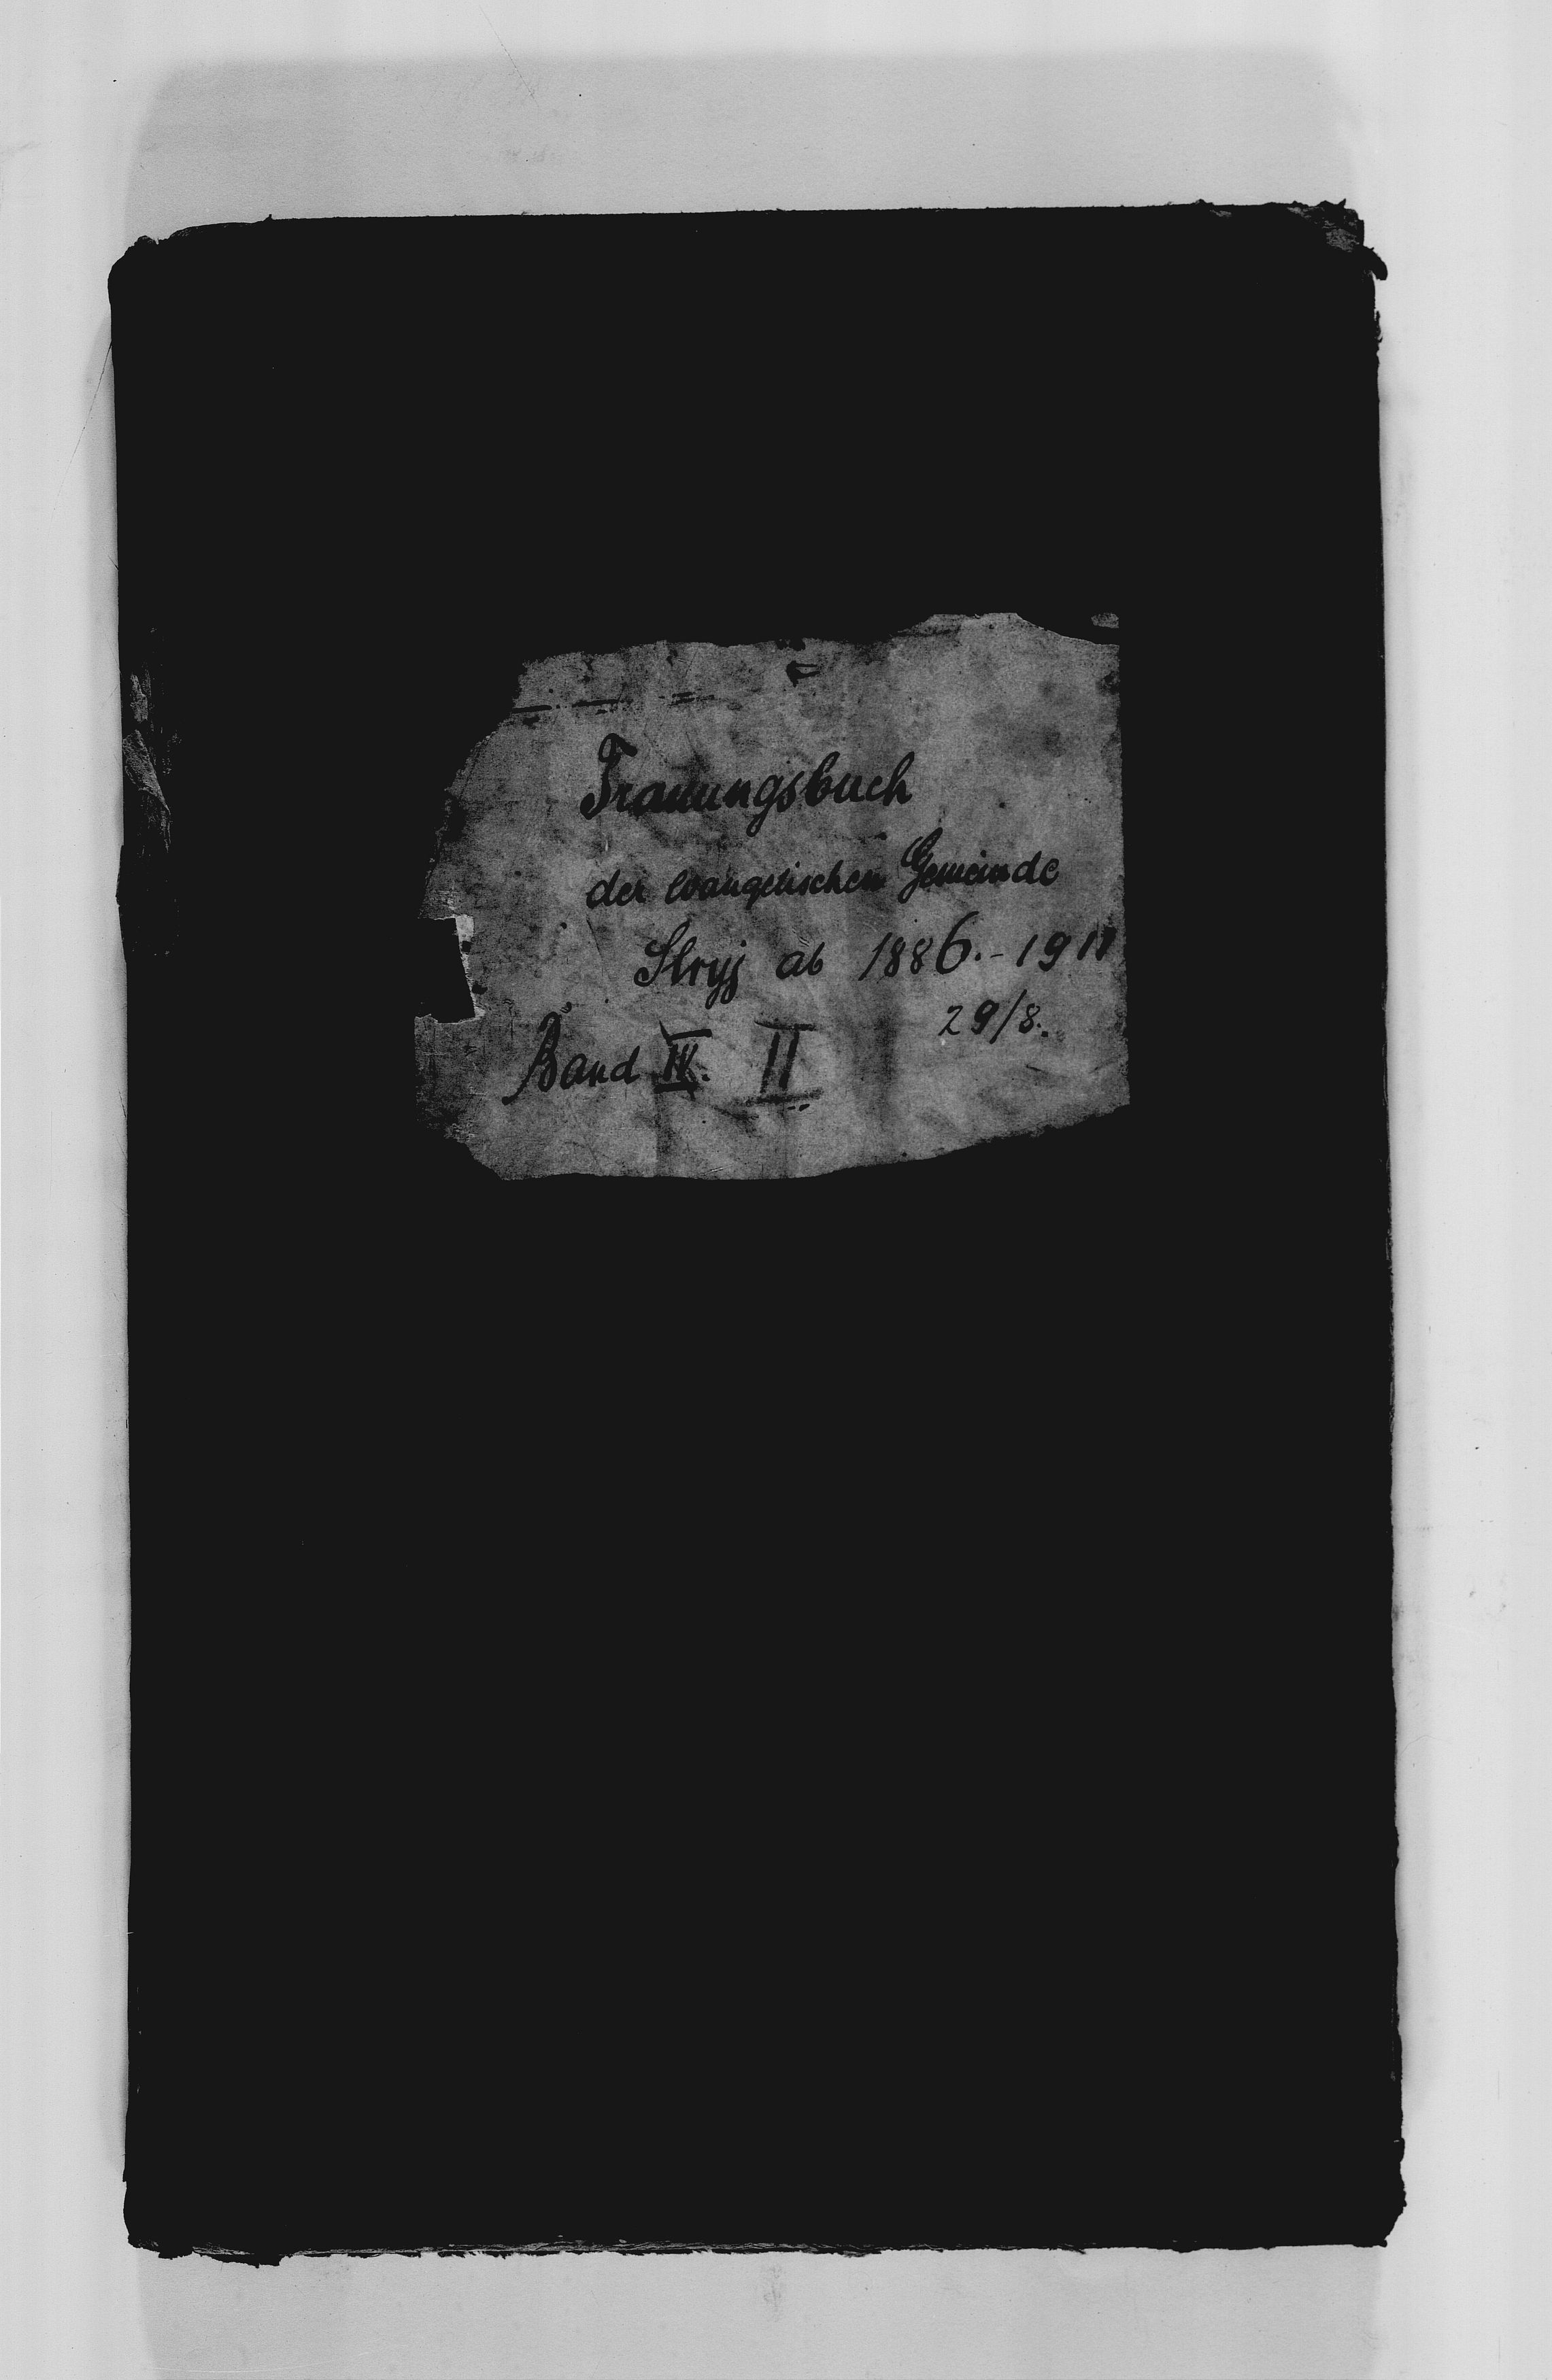 Trauungsbuch
der evangelischen Gemeinde
Stryj ab 1886.-1911
29/8.
Band IV. II